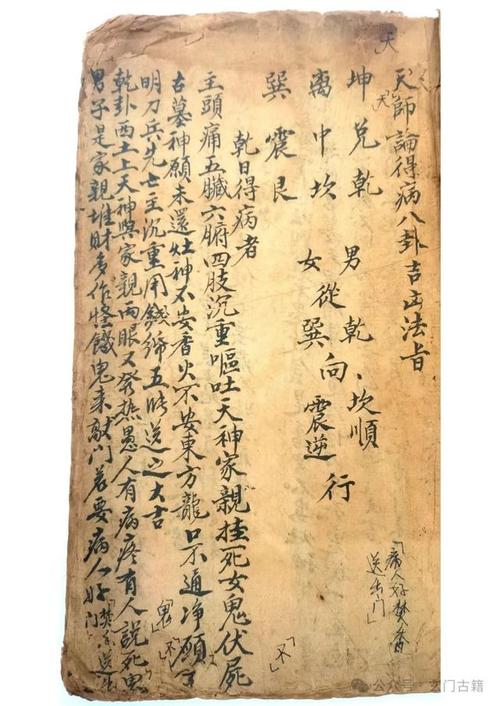 天
天師論得病八卦吉凶法旨
天
坤兌乾 男乾、坎順
離中坎 女從巽向震逆行
巽震艮
乾日得病者
主頭痛五臟六腑四肢沉重嘔吐天神家親挂死女鬼伏屍
古墓神願未還灶神不安香火不安東方龍口不通净願
明刀兵先亡主沉重用錢
五 送之大吉
乾卦西土上天神與家親兩眼又發熱愚人有病疼有人說死鬼
男子是家親堆財多作怪餓鬼來敲門若要病人好 焚香送出門
「不」
「不」
「鬼」
「病人好焚香
送出门」
公众号:玄门古籍